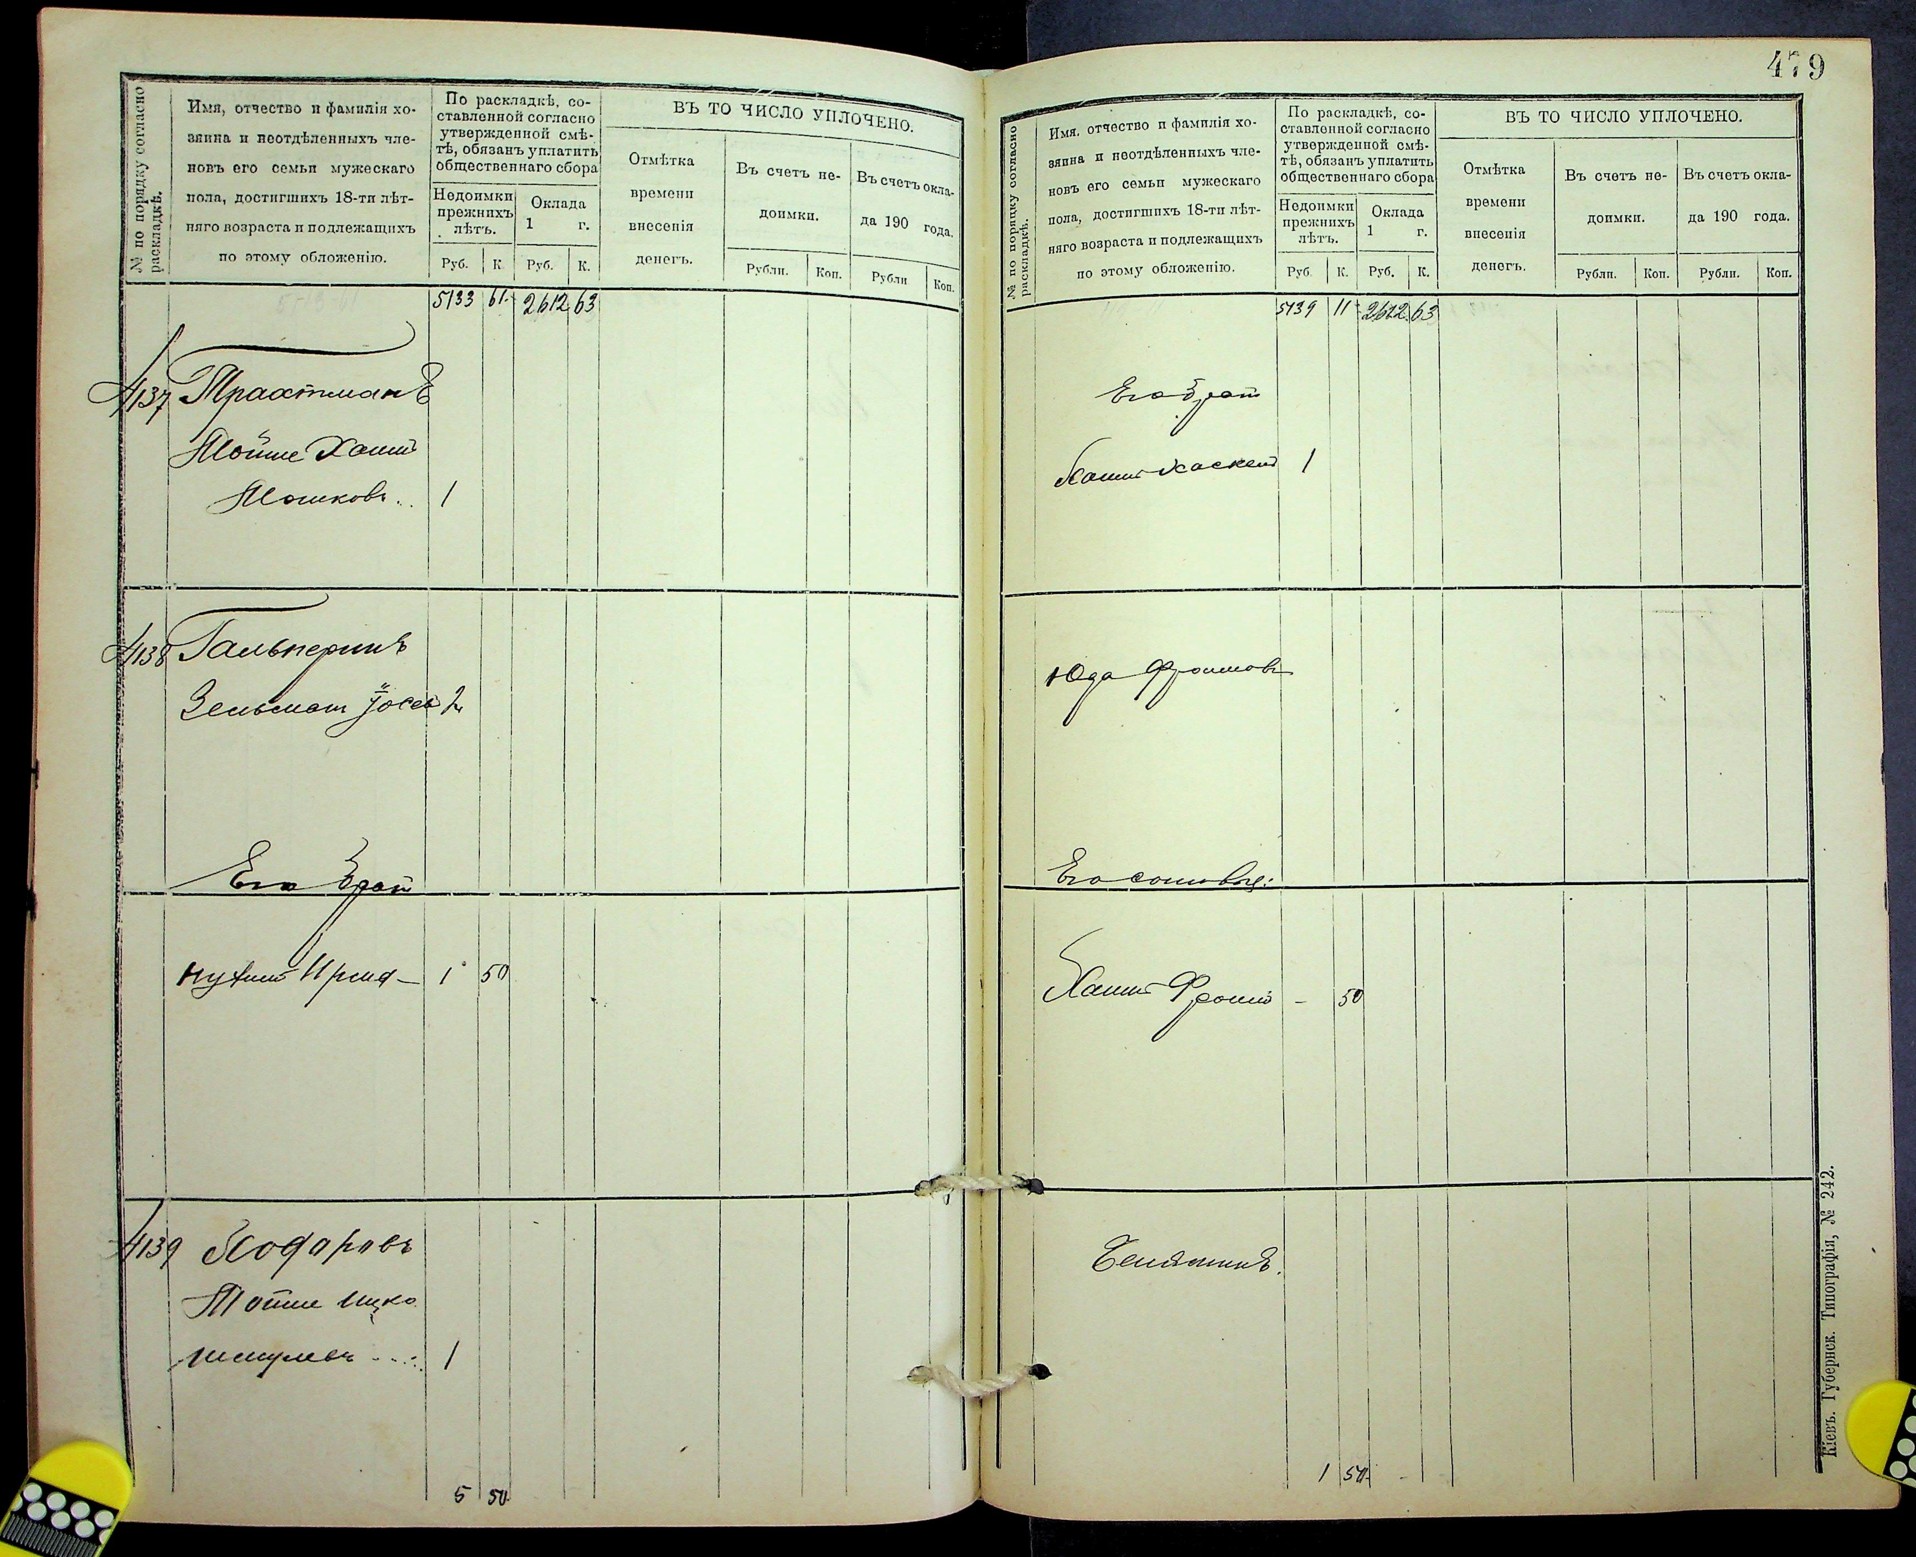 479
№ по порядку согласно раскладкѣ.
Имя, отчество и фамилія хо-
зяина и неотдѣленныхъ чле-
новъ его семьи мужескаго
пола, достигшихъ 18-ти лѣт-
няго возраста и подлежащихъ
по этому обложенію.
По раскладкѣ, со-
ставленной согласно
утвержденной смѣ-
тѣ, обязанъ уплатить
общественнаго сбора
Недоимки
прежнихъ
лѣтъ.
Оклада
1 г.
Руб. К. Руб. К.
ВЪ ТО ЧИСЛО УПЛОЧЕНО.
Отмѣтка
времени
внесенія
денегъ.
Въ счетъ не-
доимки.
Рубли. Коп.
Въ счетъ окла-
да 190 года.
Рубли Коп.
5133 61 2612 63
4137 Трахтманъ
Мойше Хаимъ
Мошковъ 1
4138 Гальперинъ
Зельман Іосев 2
Его братъ
Нухимъ 1 50
4139
Мойше Ицко
Шмулевъ 1
5 50
№ по порядку согласно раскладкѣ.
Имя, отчество и фамилія хо-
зяина и неотдѣленныхъ чле-
новъ его семьи мужескаго
пола, достигшихъ 18-ти лѣт-
няго возраста и подлежащихъ
по этому обложенію.
По раскладкѣ, со-
ставленной согласно
утвержденной смѣ-
тѣ, обязанъ уплатить
общественнаго сбора
Недоимки
прежнихъ
лѣтъ.
Оклада
1 г.
Руб. К. Руб. К.
ВЪ ТО ЧИСЛО УПЛОЧЕНО.
Отмѣтка
времени
внесенія
денегъ.
Въ счетъ не-
доимки.
Рубли. Коп.
Въ счетъ окла-
да 190 года.
Рубли. Коп.
5139 11 2612 63
Его братъ
Хаимъ Хаскель 1
Юда Фроимовъ
Его сыновья:
Хаимъ Фроимъ – 50
Беньяминъ.
1 50
Кіевъ. Губернск. Типографія, № 242.